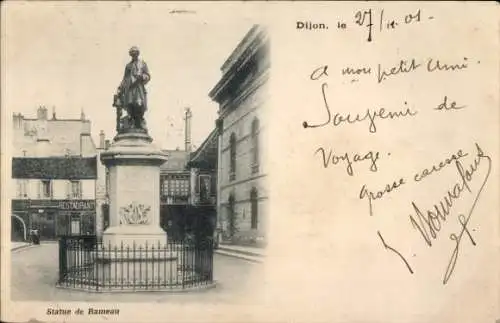 Dijon, le 27/12 01
A mon petit Ami.
Souvenir de
Voyage.
grosse caresse
RESTAURANT
Statue de Rameau